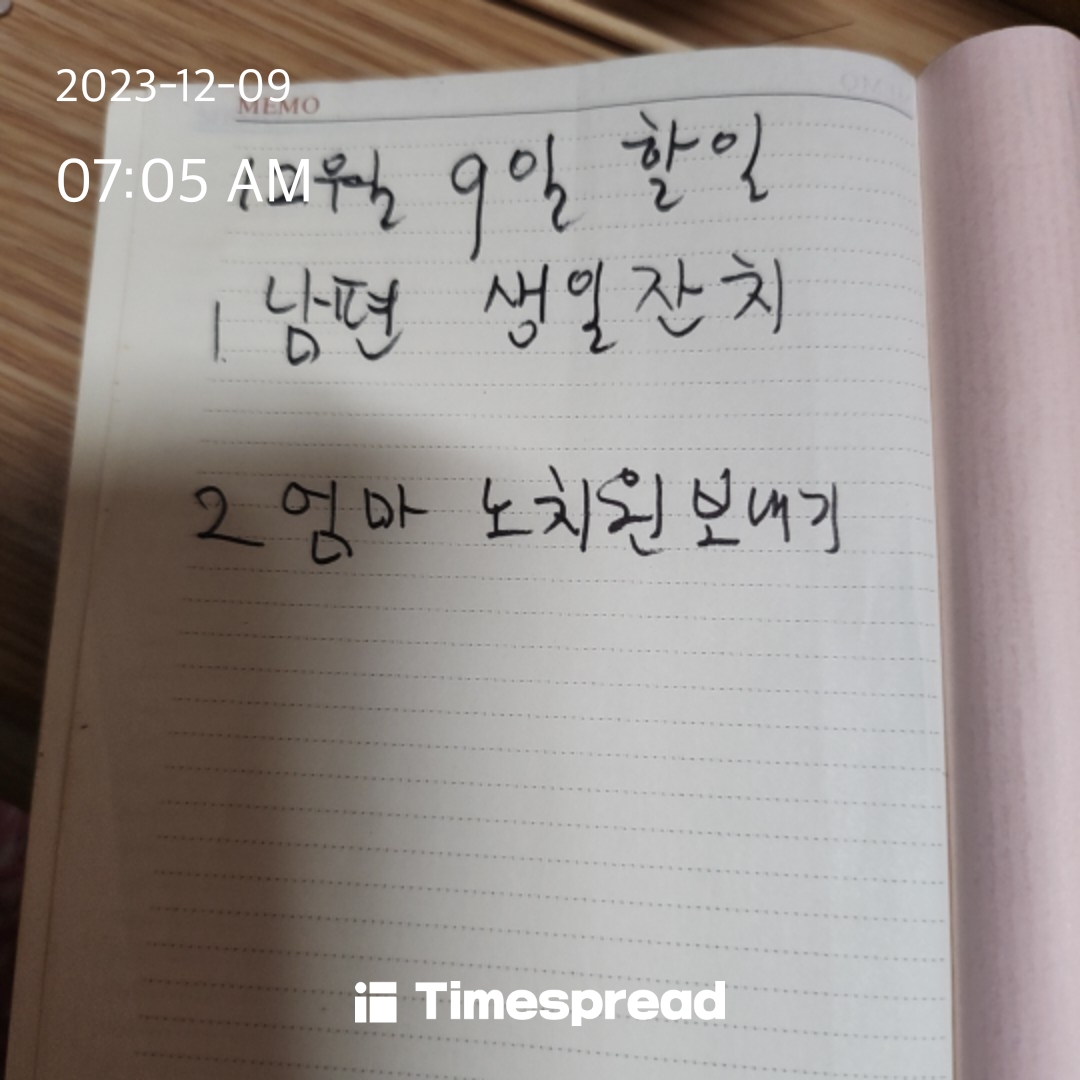 2023-12-09
MEMO
07:05 AM
12월 9일 할일
1. 남편 생일잔치
2 엄마 노치원 보내기
Timespread